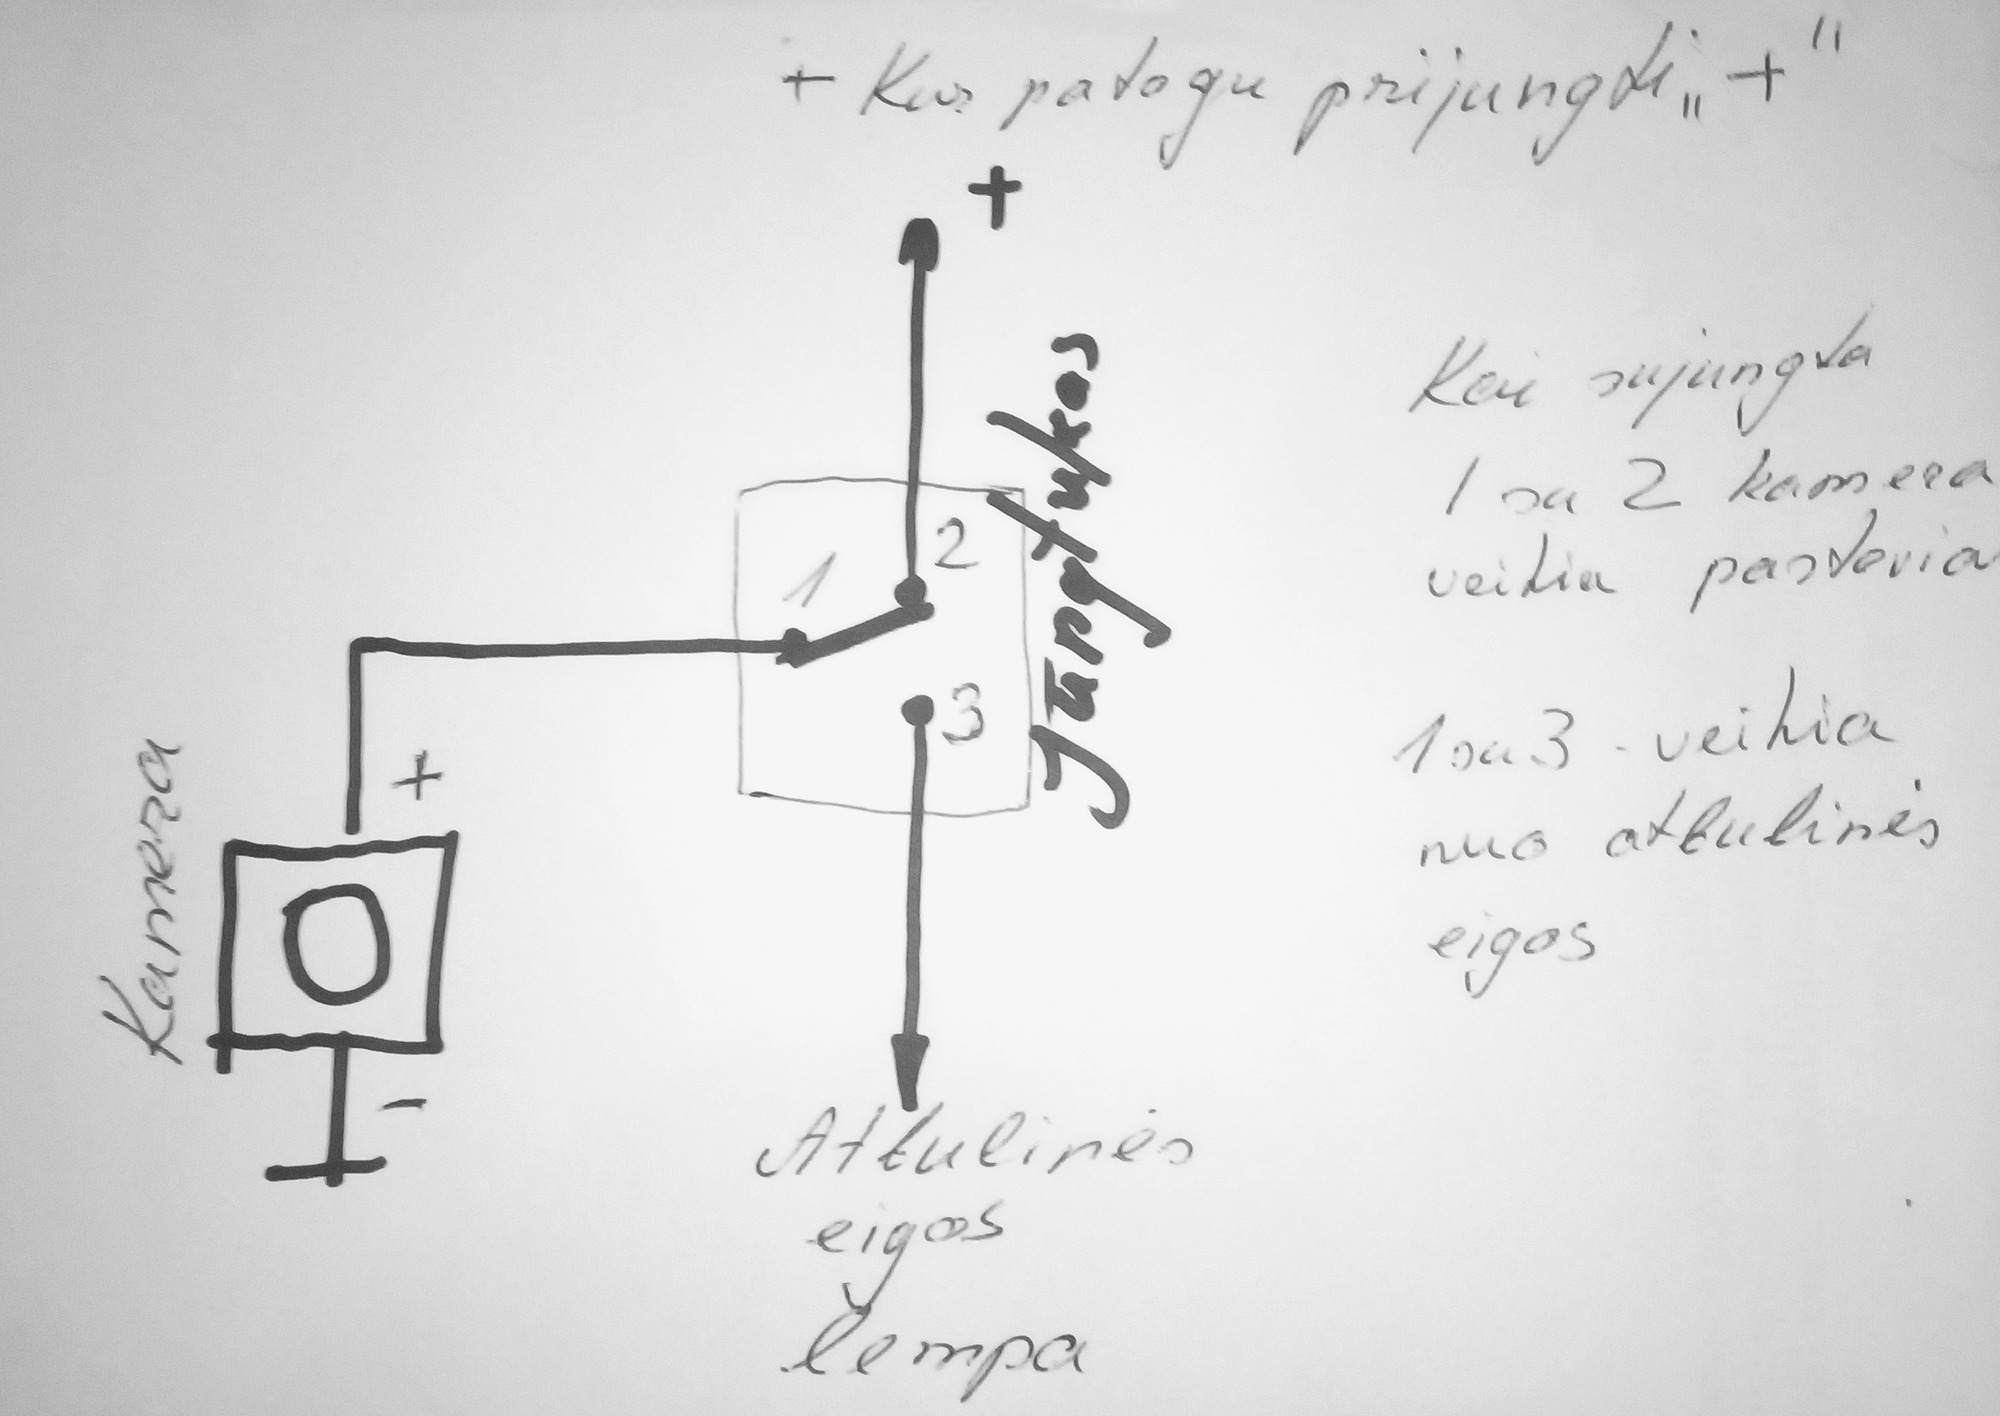 + Kur patogu prijungti „+“
+
Jungtukas
1
2
3
Kamera
+
-
Atbulinės
eigos
lempa
Kai sujungta
1 su 2 kamera
veikia pastovia
1 su 3 - veikia
nuo atbulinės
eigos